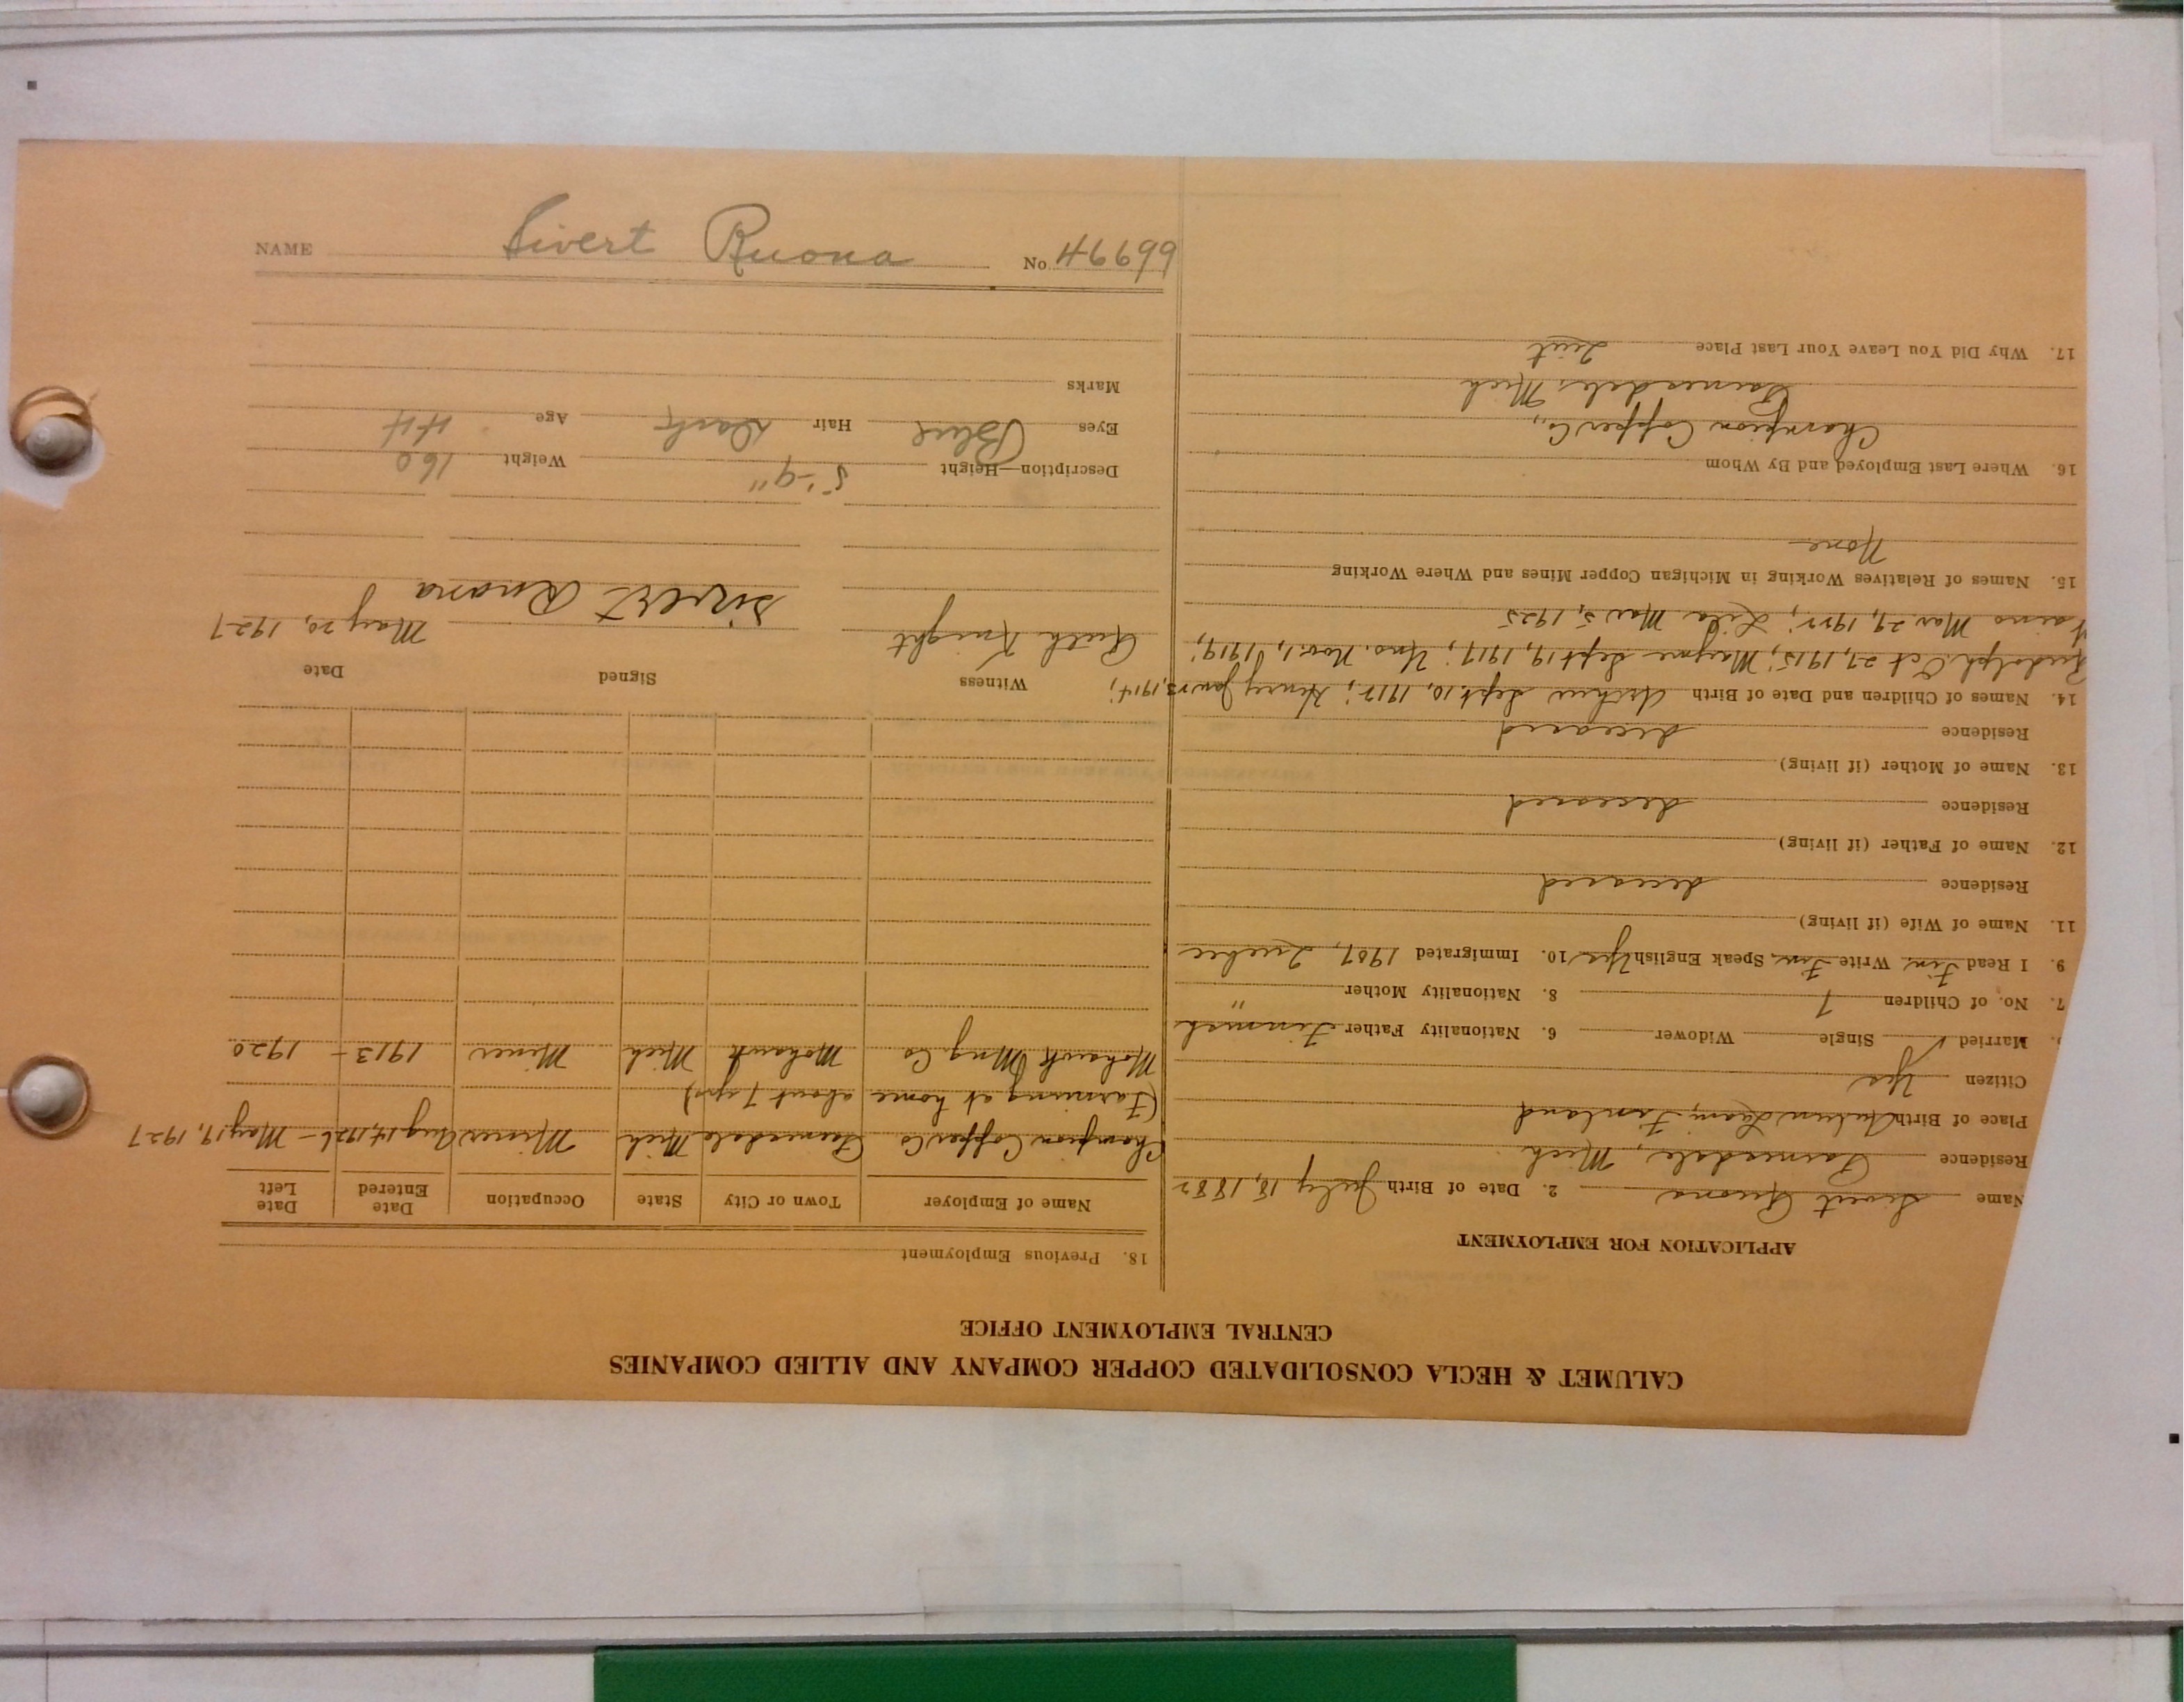 CALUMET & HECLA CONSOLIDATED COPPER COMPANY AND ALLIED COMPANIES
CENTRAL EMPLOYMENT OFFICE
APPLICATION FOR EMPLOYMENT
Name Sivert Ruona 2. Date of Birth July 18, 1882
Residence Painesdale, Mich
Place of Birth Finland
Citizen Yes
Married ✓ Single Widower 6. Nationality Father Finnish
7. No. of Children 7 8. Nationality Mother "
9. I Read Fin Write Fin Speak English Yes 10. Immigrated 1907, Quebec
11. Name of Wife (if living)
Residence deceased
12. Name of Father (if living)
Residence deceased
13. Name of Mother (if living)
Residence deceased
14. Names of Children and Date of Birth Arthur Sept. 10, 1912; Henry Jan 23, 1914;
Rudolph Oct 27, 1915; Mayme Sept 19, 1917; Uno. Nov. 1, 1919;
Waino Mar. 29, 1922; Lila Mar 5, 1925
15. Names of Relatives Working in Michigan Copper Mines and Where Working
None
16. Where Last Employed and By Whom
Champion Copper Co.,
Painesdale, Mich
17. Why Did You Leave Your Last Place Quit
18. Previous Employment
Name of Employer Town or City State Occupation Date Entered Date Left
Champion Copper Co Painesdale Mich Miner Aug 14, 1926 - May 19, 1927
(Farming at home about 7 yrs)
Mohawk Mng. Co Mohawk Mich Miner 1913 - 1920
Witness Signed Date
Ruth Knight Sivert Ruona May 20, 1927
Description—Height 5'-9" Weight 160
Eyes Blue Hair Dark Age 44
Marks
NAME Sivert Ruona No. 46699